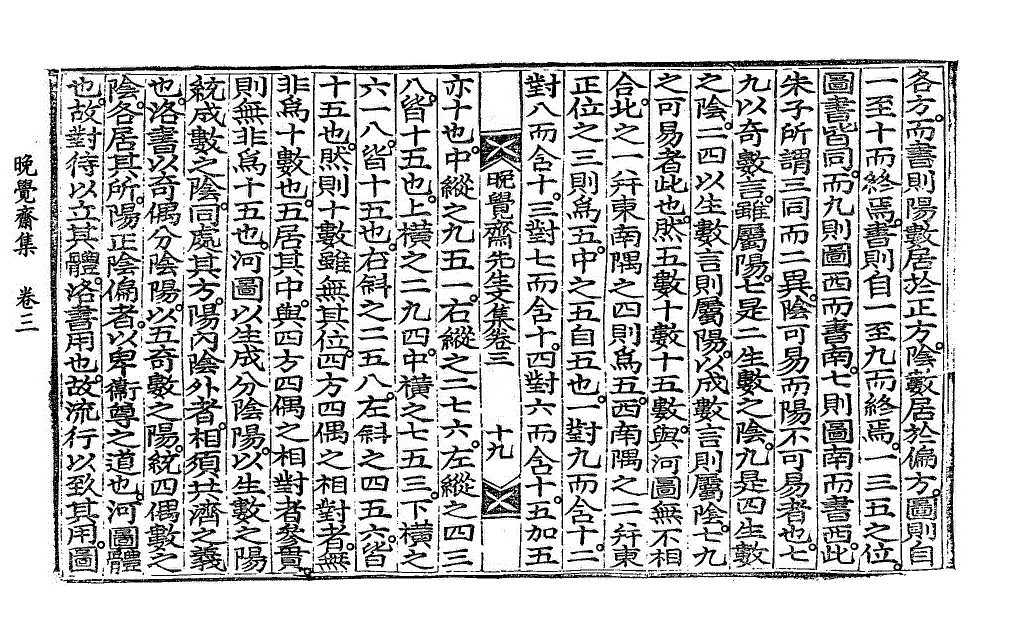 各方。而書則陽數居於正方。陰數居於偏方。圖則自
一至十而終焉。書則自一至九而終焉。一三五之位。
圖書皆同。而九則圖西而書南。七則圖南而書西。此
朱子所謂三同而二異。陰可易而陽不可易者也。七
九以奇數言。雖屬陽。七是二生數之陰。九是四生數
之陰。二四以生數言則屬陽。以成數言則屬陰。七九
之可易者此也。然五數十數十五數。與河圖無不相
合。北之一幷東南隅之四則爲五。西南隅之二幷東
正位之三則爲五。中之五自五也。一對九而含十。二
對八而含十。三對七而含十。四對六而含十。五加五
晩覺齋先生文集卷三 十九
亦十也。中縱之九五一。右縱之二七六。左縱之四三
八。皆十五也。上橫之二九四。中橫之七五三。下橫之
六一八。皆十五也。右斜之二五八。左斜之四五六。皆
十五也。然則十數雖無其位。四方四偶之相對者。無
非爲十數也。五居其中。與四方四偶之相對者參貫。
則無非爲十五也。河圖以生成分陰陽。以生數之陽
統成數之陰。同處其方。陽內陰外者。相須共濟之義
也。洛書以奇偶分陰陽。以五奇數之陽。統四偶數之
陰。各居其所。陽正陰偏者。以卑衞尊之道也。河圖體
也。故對待以立其體。洛書用也。故流行以致其用。圖
晚覺齋集 卷三